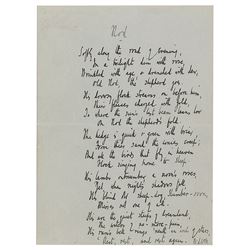 Nod
Softly along the road of evening,
In a twilight dim with rose,
Wrinkled with age, & drenched with dew,
Old Nod, the shepherd, goes.
His drowsy flock streams on before him,
Their fleeces charged with gold,
To where the sun's last beam leans low
On Nod the shepherd's fold.
The hedge is quick & green with briar,
From their sand the conies creep;
And all the birds that fly in heaven
Flock singing home to sleep
His lambs outnumber a noon's roses
Yet, when night's shadows fall,
His blind old sheep-dog, Slumber-soon,
Misses not one of all.
His are the quiet steeps of dreamland,
The waters of no-more-pain,
His ram's bell rings 'neath an arch of stars,
Rest, rest, and rest again.